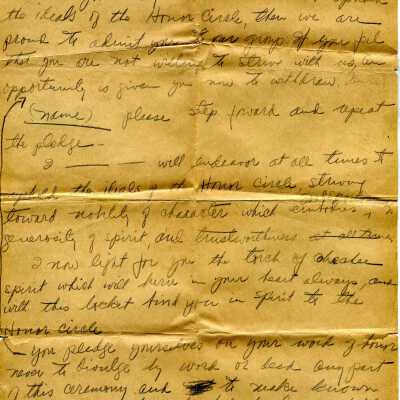 the ideals of the Honor Circle, then we are
proud to admit you to our group. If you feel
that you are not willing to strive with us, an
opportunity is given you now to withdraw.
(name) please step forward and repeat
the pledge -
I ——— will endeavor at all times to
uphold the ideals of the Honor Circle, striving
toward nobility of character which embodies,
generosity of spirit, and trustworthiness at all times
I now light for you the torch of
spirit which will burn in your heart always, and
with this locket bind you in spirit to the
Honor Circle
- you pledge yourselves on your word of honor
never to divulge by word or deed any part
of this ceremony and to make known